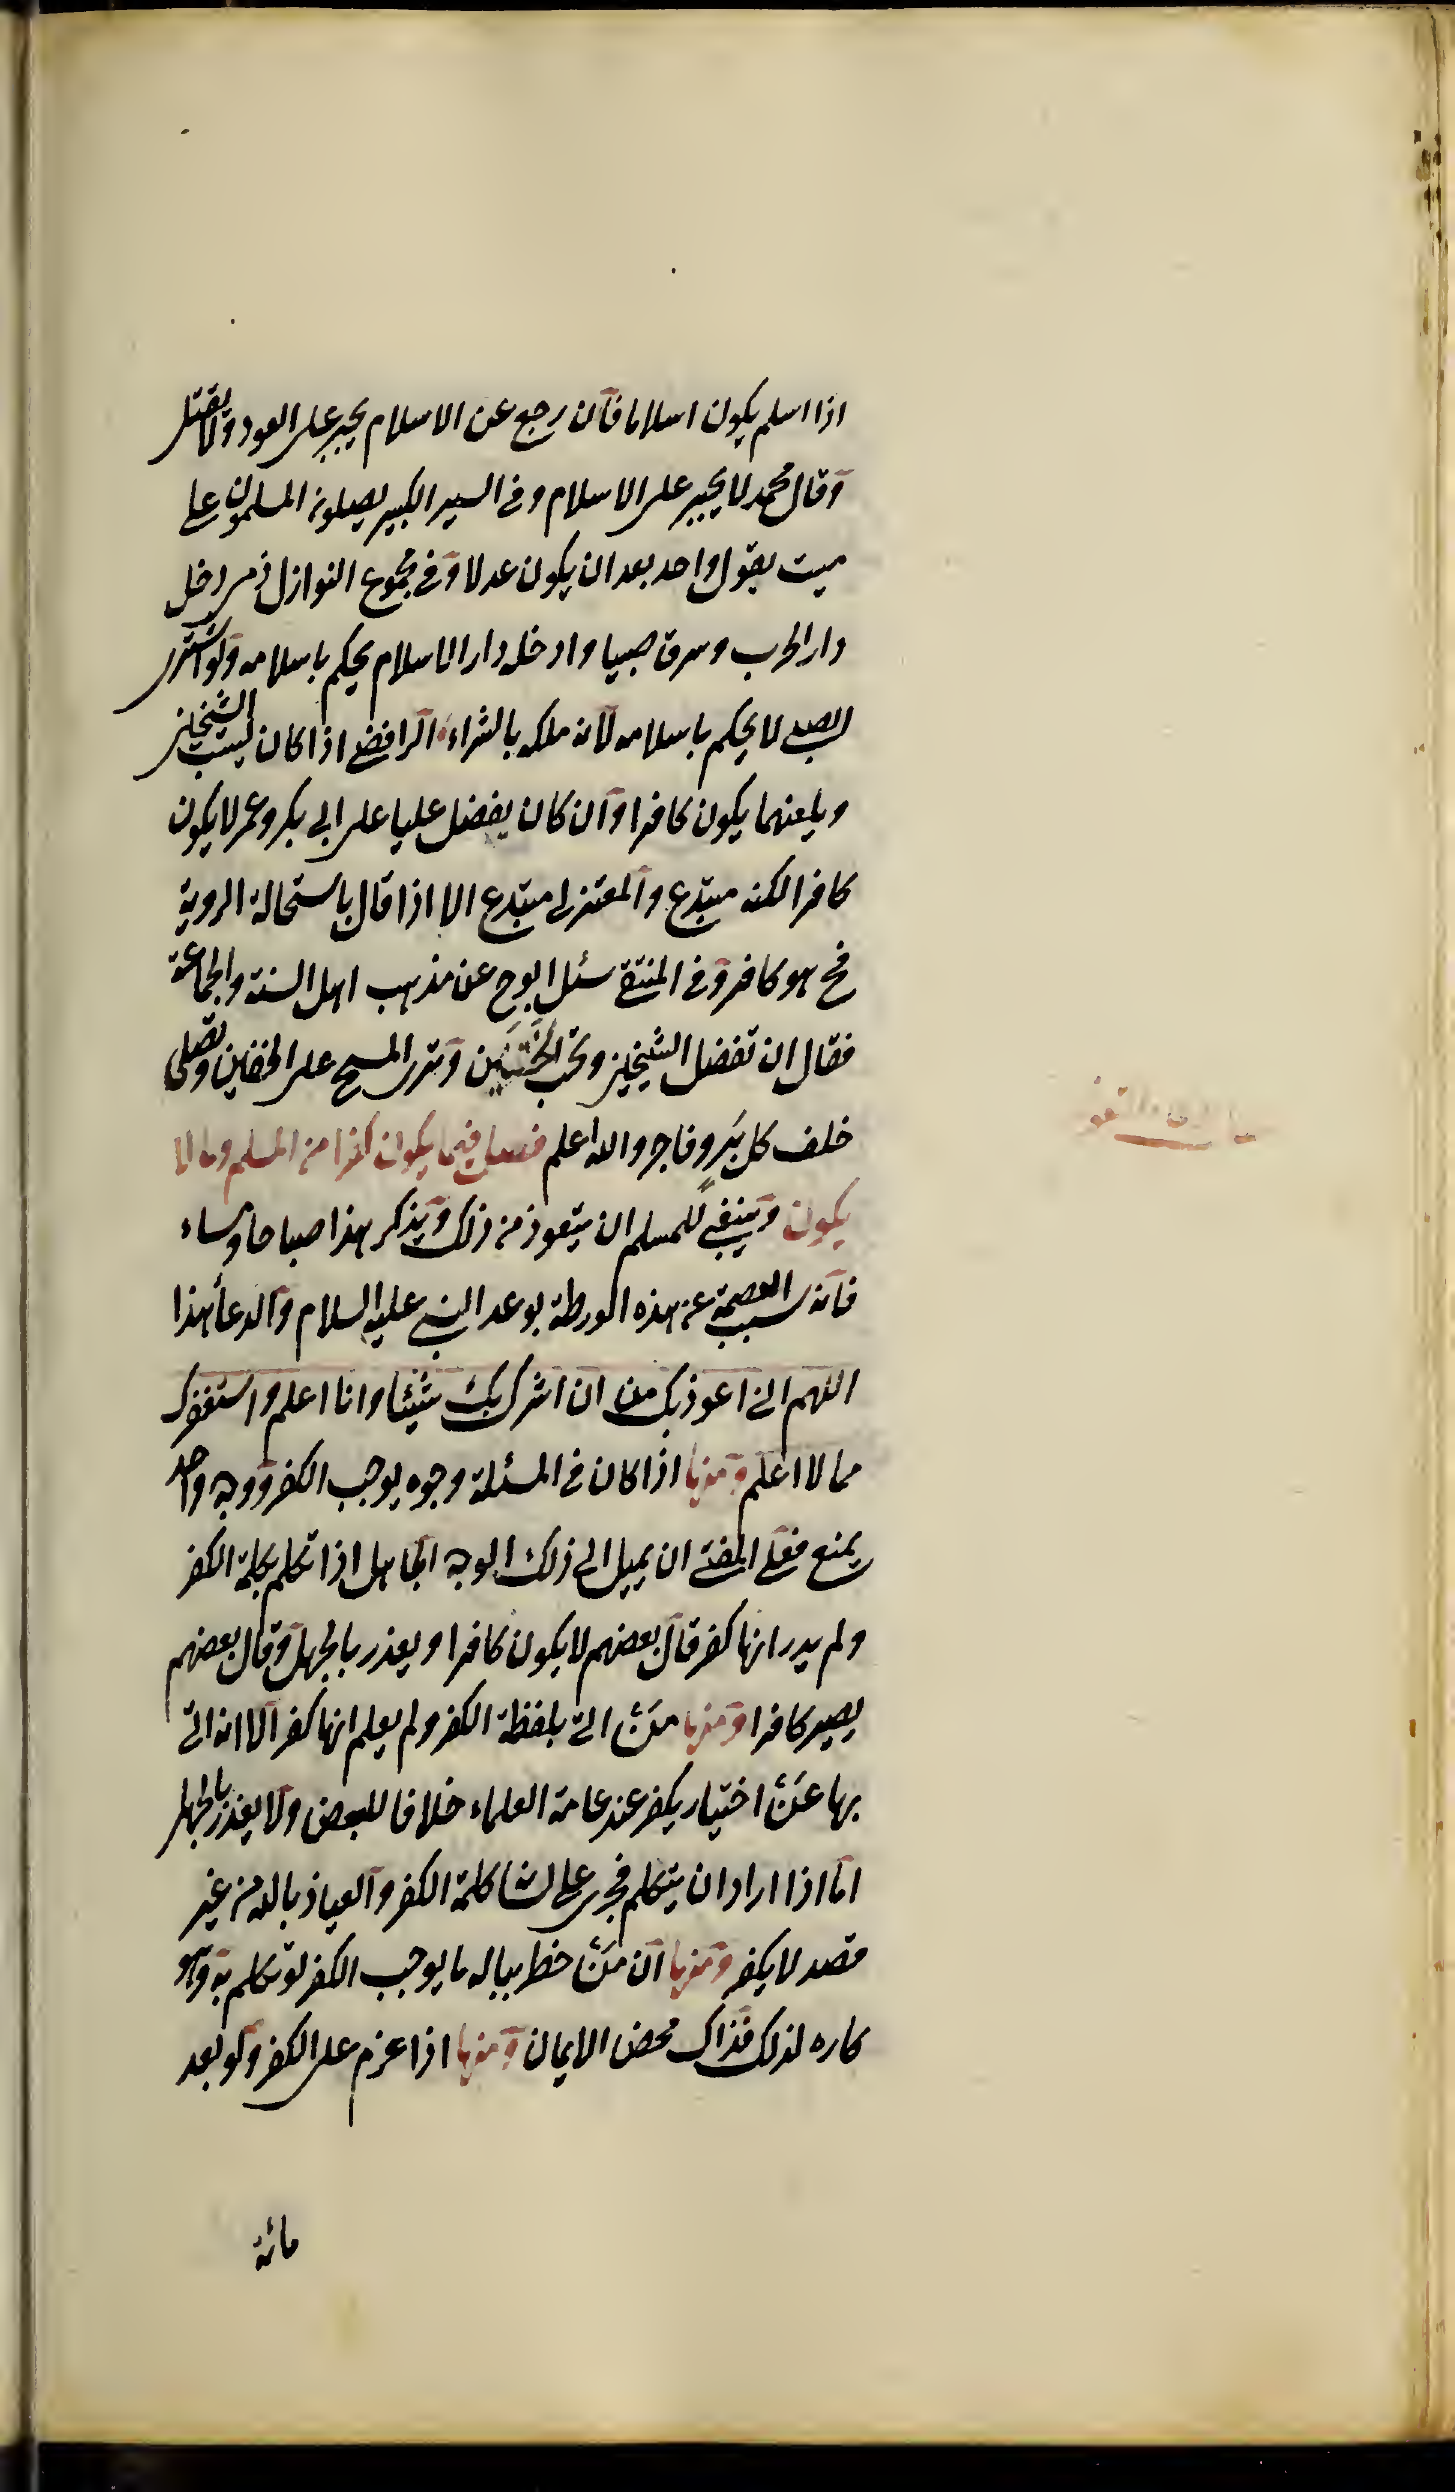 اذا اسلم يكون اسلاما فان رجع عن الاسلام يجبر على العود ولا يقتل
وقال محمد لا يجبر على الاسلام وفى السير الكبير يصلون المسلمون على
ميت بقول واحد بعد ان يكون عدلا وفى مجموع النوازل ذمى دخل
دار الحرب وسرق صبيا وادخله دار الاسلام يحكم باسلامه ولو اشترى
الصبى لا يحكم باسلامه لانه ملكه بالشراء الرافضى اذا كان يسب الشيخين
ويلعنهما يكون كافرا وان كان يفضل عليا على ابى بكر وعمر لا يكون
كافرا لكنه مبتدع والمعتزلى مبتدع الا اذا قال باستحالة الروية
فح هو كافر وفى المنتقى سئل ابوح عن مذهب اهل السنة والجماعة
فقال ان تفضل الشيخين وتحب الختنين وترى المسح على الخفين وتصلى
خلف كل بر وفاجر والله اعلم فصل فيما يكون كفرا من المسلم وما لا
يكون وينبغى للمسلم ان يتعوذ من ذلك ويذكر هذا صباحا ومساء
فانه سبب العصمة عن هذه الورطة بوعد النبى عليه السلام والدعأ هذا
اللهم انى اعوذ بك من ان اشرك بك شيئا وانا اعلم واستغفرك
مما لا اعلم ومنها اذا كان فى المسئلة وجوه يوجب الكفر ووجه واحد
يمنع فعلى المفتى ان يميل الى ذلك الوجه الجاهل اذا تكلم بكلمة الكفر
ولم يدر انها كفر قال بعضهم لا يكون كافرا ويعذر بالجهل وقال بعضهم
يصير كافرا ومنها من اتى بلفظة الكفر ولم يعلم انها كفر الا انه اتى
بها عن اختيار يكفر عند عامة العلماء خلافا للبعض ولا يعذر بالجهل
اما اذا اراد ان يتكلم فجرى على لسانه كلمة الكفر والعياذ بالله من غير
قصد لا يكفر ومنها ان من خطر بباله ما يوجب الكفر لو تكلم به وهو
كاره لذلك فذاك محض الايمان ومنها اذا عزم على الكفر ولو بعد
مائة